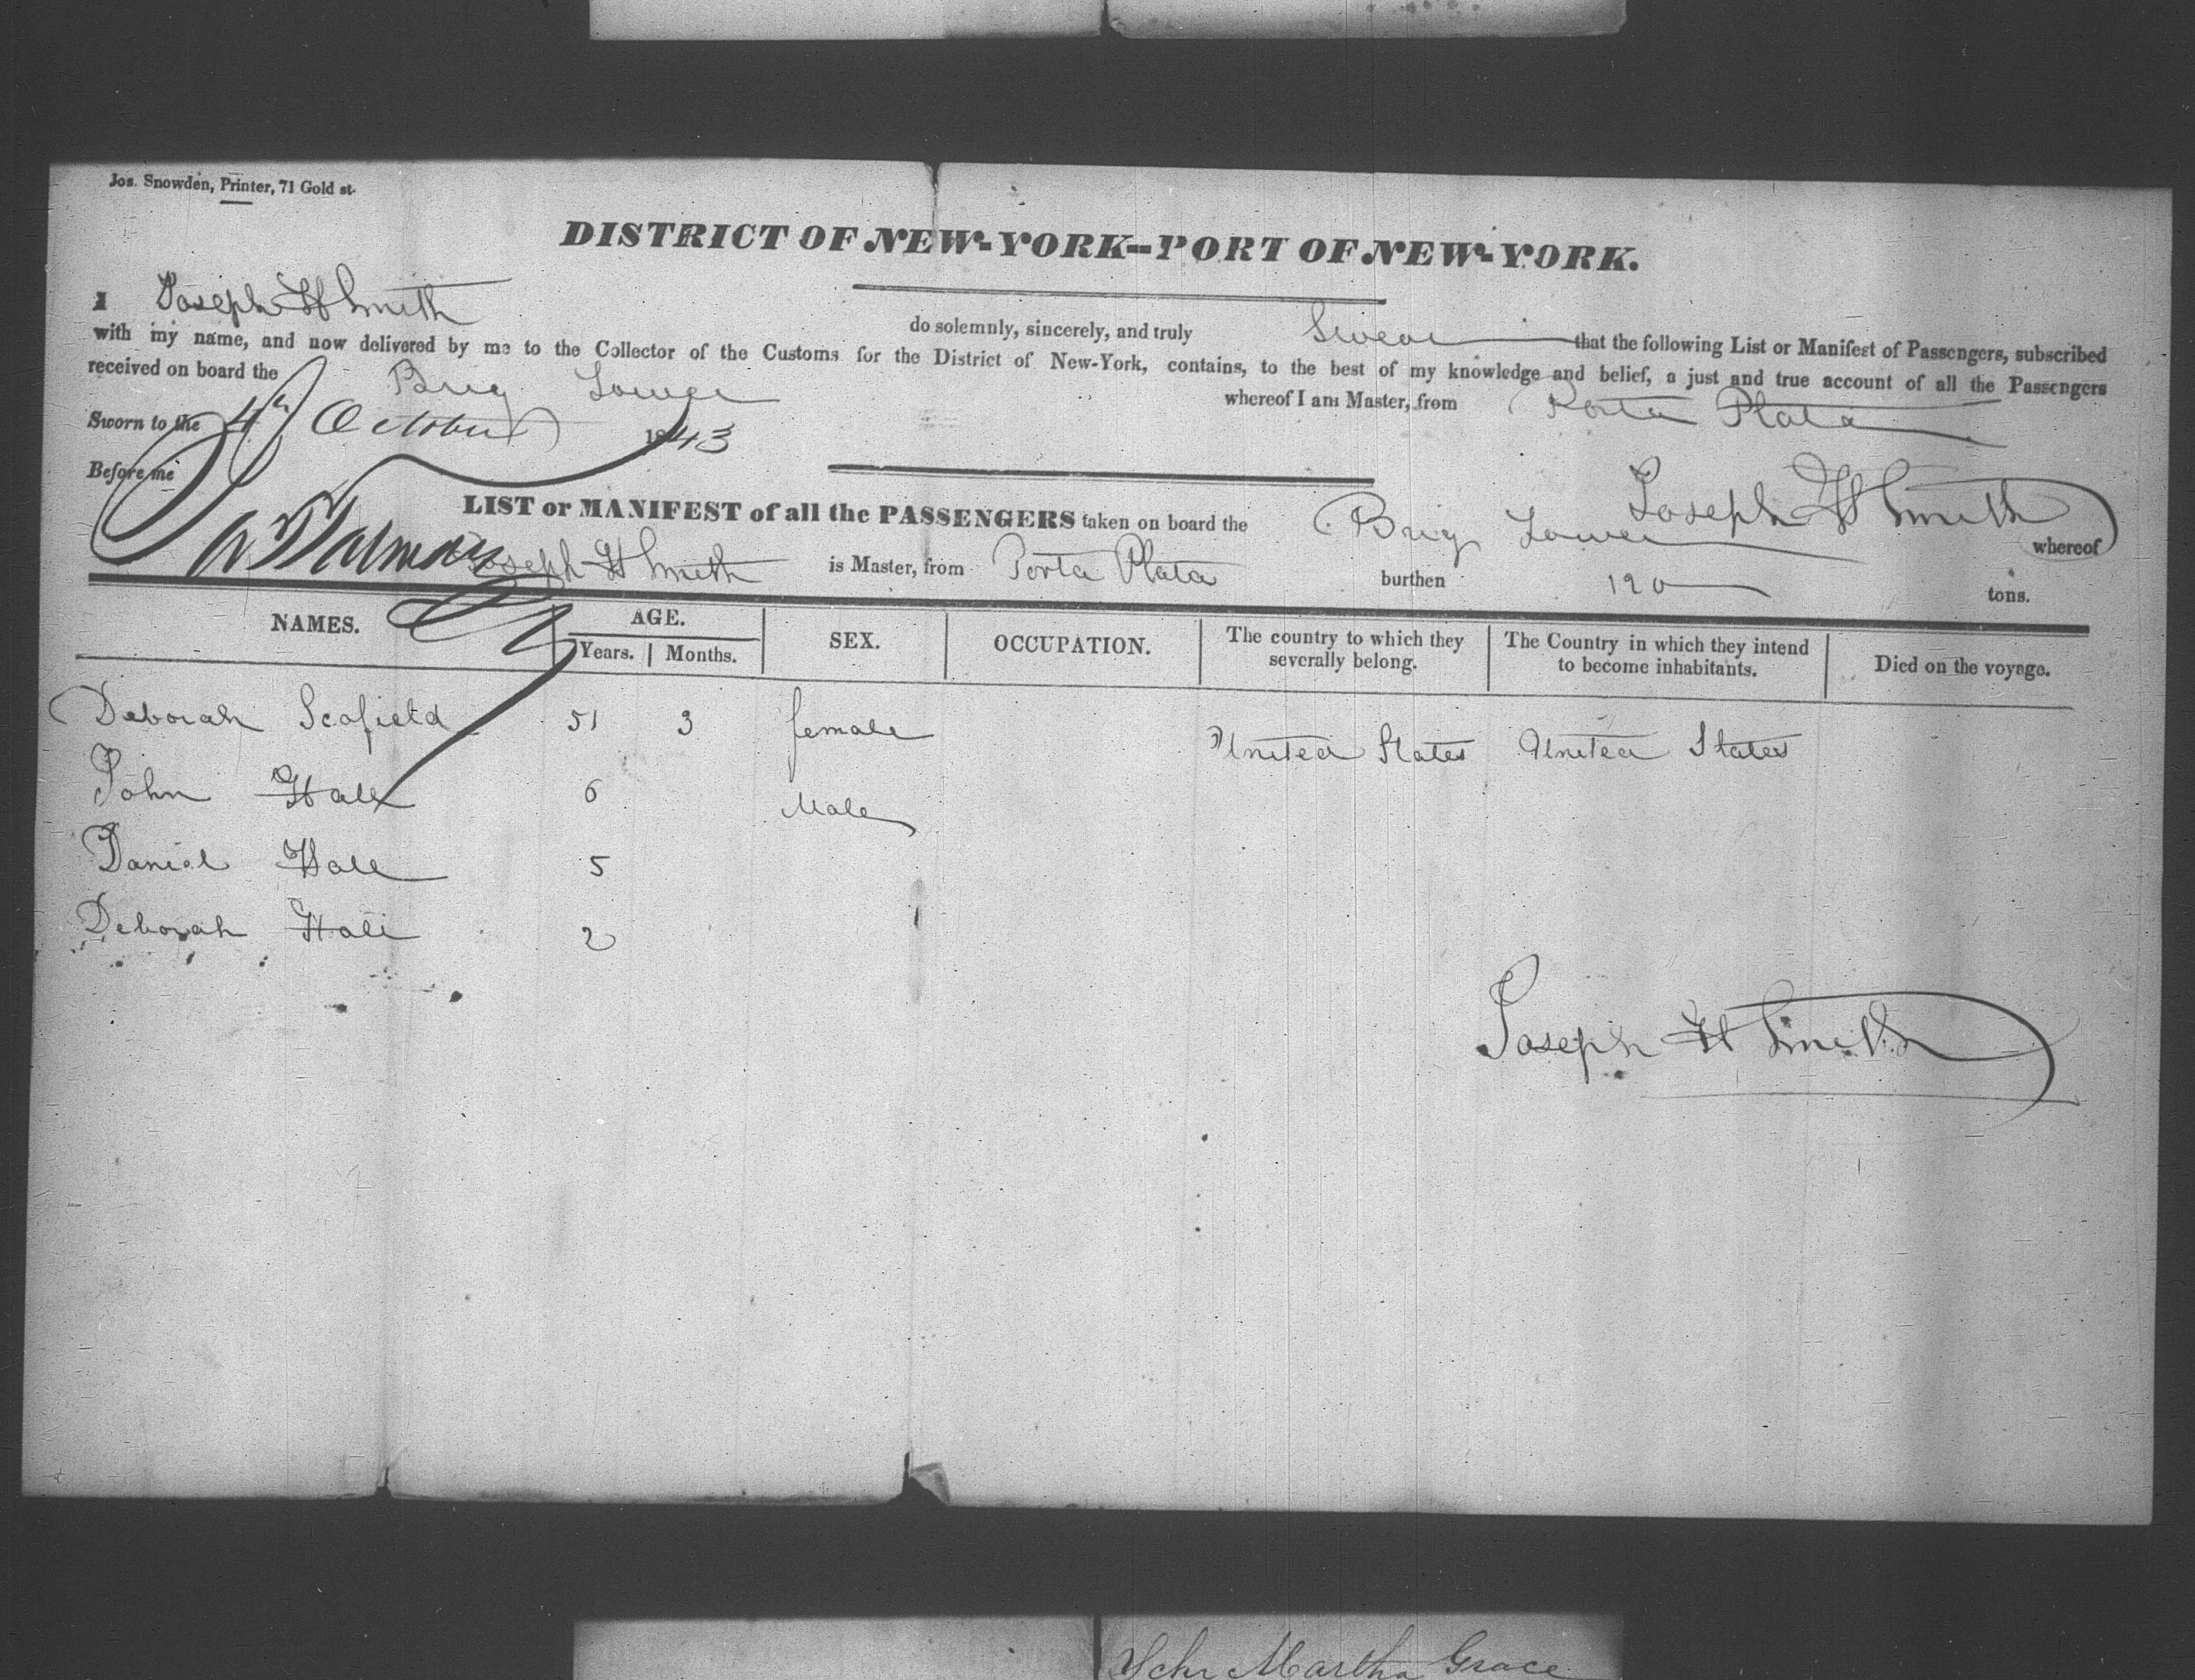 Jos. Snowden, Printer, 71 Gold st.
DISTRICT OF NEW-YORK--PORT OF NEW-YORK.
I Joseph H Smith do solemnly, sincerely, and truly Swear that the following List or Manifest of Passengers, subscribed
with my name, and now delivered by me to the Collector of the Customs for the District of New-York, contains, to the best of my knowledge and belief, a just and true account of all the Passengers
received on board the Brig whereof I am Master, from Porta Plata
Sworn to the 4th October 1843
Before me
Joseph H Smith
LIST or MANIFEST of all the PASSENGERS taken on board the Brig whereof
Joseph H Smith is Master, from Porta Plata burthen 120 tons.
NAMES. AGE. Years. Months. SEX. OCCUPATION. The country to which they severally belong. The Country in which they intend to become inhabitants. Died on the voyage.
Deborah Scofield 51 3 female United States United States
John Hall 6 Male
Daniel Hall 5
Deborah Hall 2
Joseph H Smith
Schr Martha Grace